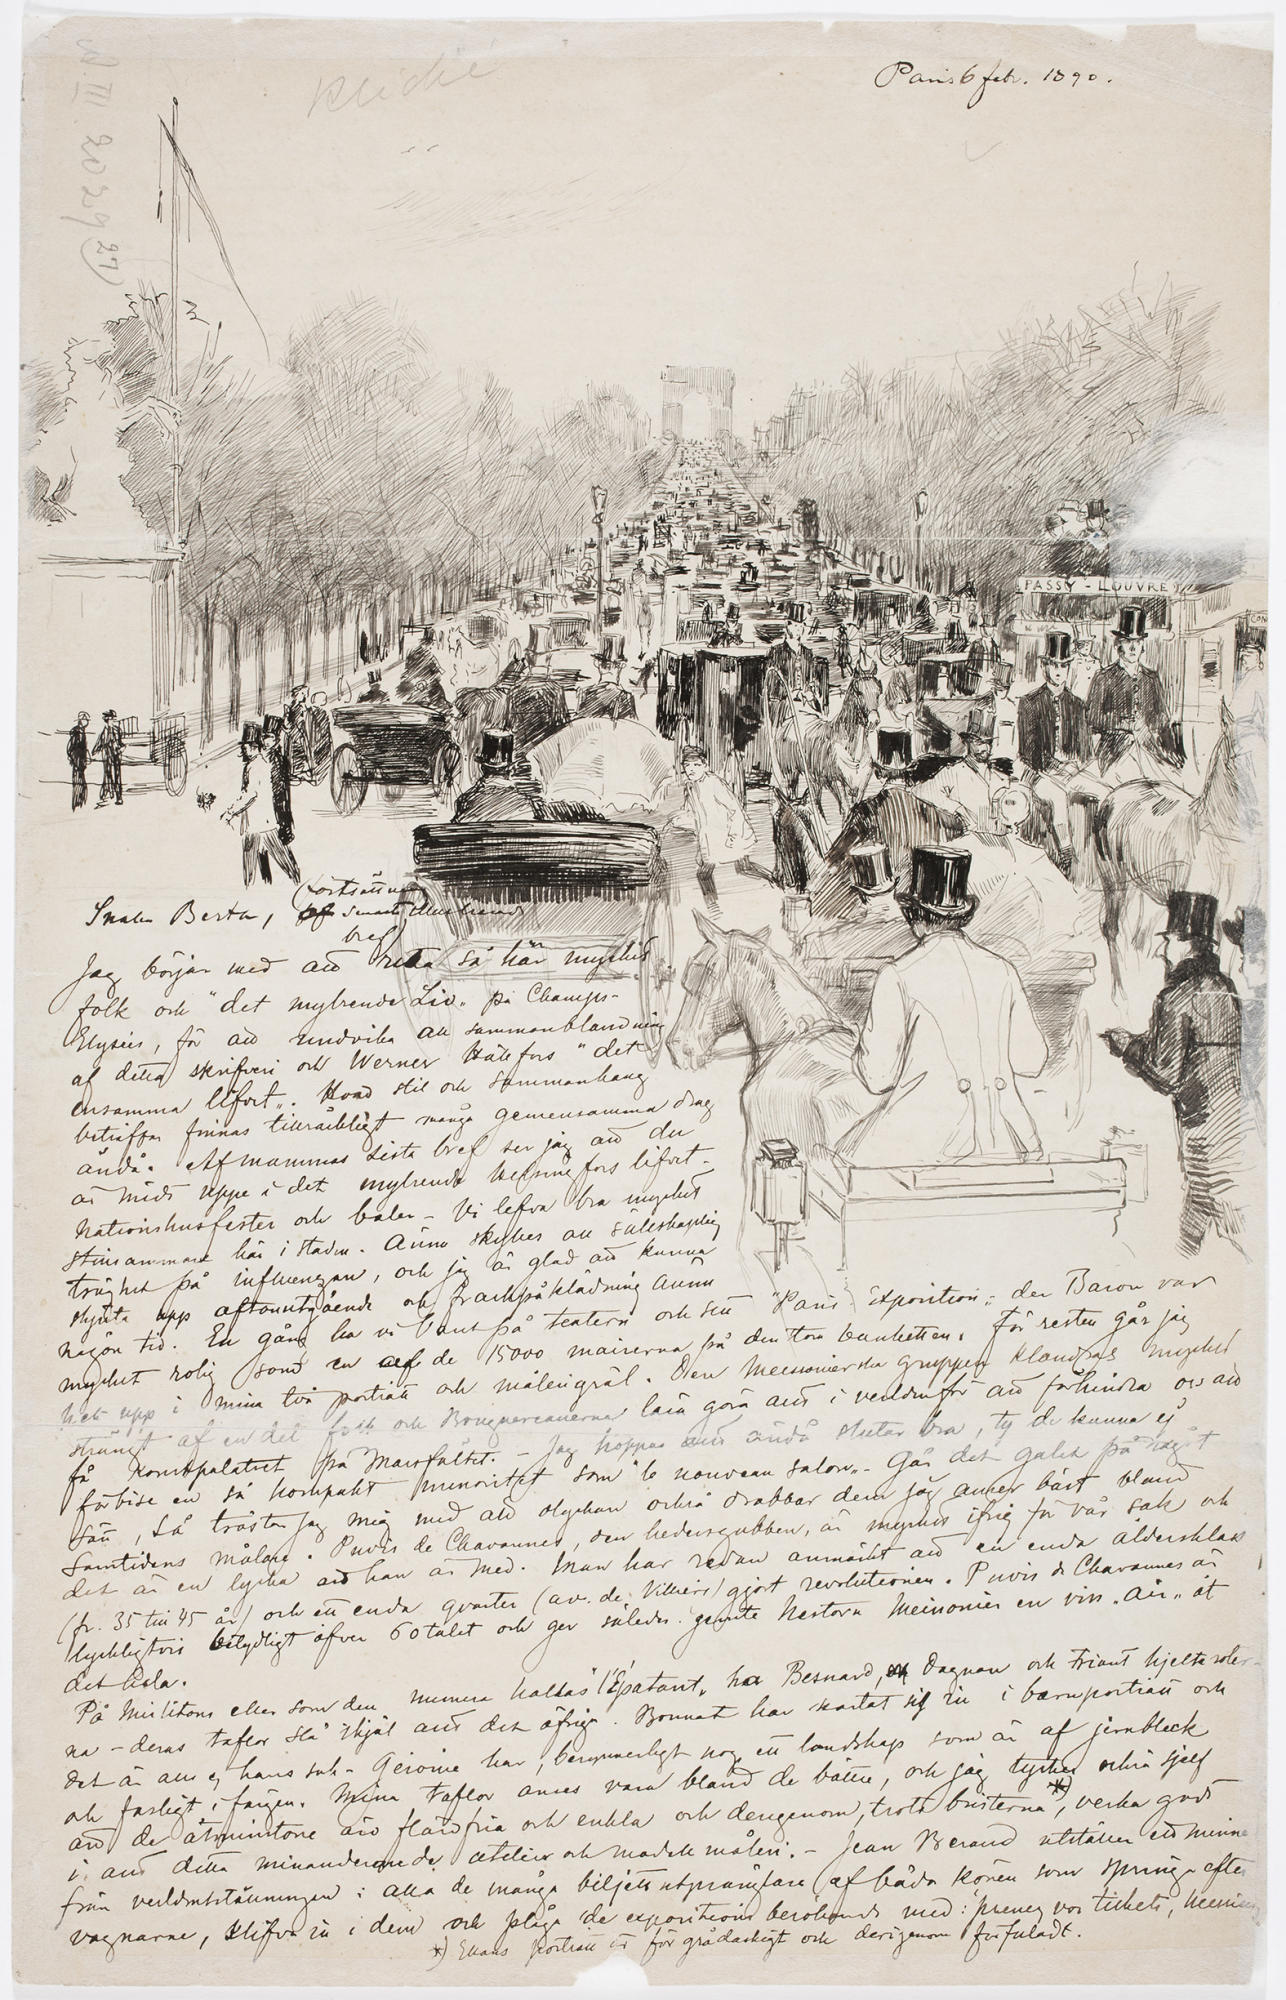 Kliché
Paris 6 febr. 1890.
A. III 2029 (27)
PASSY - LOUVRE
Snälla Berta, (fortsättning
af senaste
bref)
Jag börjar med att rita så här mycket
folk och "det myllrande Liv" på Champs-
Elysées, för att undvika all sammanblandning
af detta skrifveri och Werner "det
ensamma lifvet". Hvad stil och sammanhang
beträffar finnas tillräckligt många gemensamma drag
ändå. Af mammas sista bref ser jag att du
är midt uppe i det myllrande helsingfors lifvet -
Nationshusfester och baler - Vi lefva bra mycket
stillsammare här i staden. Ännu skylles all sällskaplig
tröghet på influenzan, och jag är glad att kunna
skjuta upp aftonutgående och frackpåklädning ännu
någon tid. En gång ha vi varit på teatern och sett "Paris Exposition", der Baron var
mycket rolig som en af de 15000 mairerna på den stora banketten. För resten går jag
helt upp i mina två porträtt och målerigräl. Den Meissonierska gruppen klandras mycket
strängt af en del folk och Bouguereauerna lära göra allt i verlden för att förhindra oss att
få konstpalatset på Marsfältet. - Jag hoppas allt ändå slutar bra, ty de kunna ej
förbise en så kompakt minoritet som "le nouveau salon". - Går det galet på något
sätt, så tröstar jag mig med att olyckan också drabbar dem jag anser bäst bland
samtidens målare. Puvis de Chavannes, den hedersgubben, är mycket ifrig för vår sak och
det är en lycka att han är med. Man har redan anmärkt att en enda åldersklass
(fr. 35 till 45 år) och ett enda qvarter (av. de Villiers) gjort revolutionen. Puvis de Chavannes är
lyckligtvis betydligt öfver 60 talet och ger således jemte Nestorn Meissonier en viss "air" åt
det hela.
På Mirlitons eller som den numera kallas "l'Épatant", ha Besnard, Dagnan och Friant hjelteroller-
na - deras taflor slå ihjäl allt det öfriga. Bonnat har kastat sig in i barnporträtt och
det är alls ej hans sak - Gérôme har, besynnerligt nog, ett landskap som är af jernbleck
och farligt i färgen. Mina taflor anses vara bland de bättre, och jag tycker också sjelf
att de åtminstone äro flärdfria och enkla och derigenom, trots bristerna *), verka godt
i allt detta minauderande atelier och modellmåleri. - Jean Beraud utställer ett minne
från verldsutställningen: alla de många biljettutprånglare (af båda könen som springa efter
vagnarne, klifva in i dem och plåga de expositions besökande med: "prenez vos tickets,
*) Ellans porträtt är för grådaskigt och derigenom förfuladt.